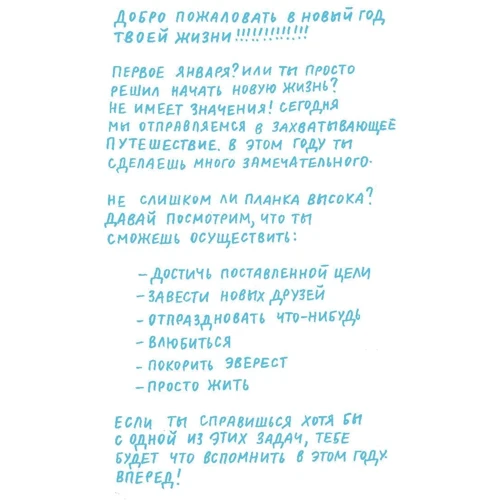 ДОБРО ПОЖАЛОВАТЬ В НОВЫЙ ГОД
ТВОЕЙ ЖИЗНИ!!!!!!!!!!!!!
ПЕРВОЕ ЯНВАРЯ? ИЛИ ТЫ ПРОСТО
РЕШИЛ НАЧАТЬ НОВУЮ ЖИЗНЬ?
НЕ ИМЕЕТ ЗНАЧЕНИЯ! СЕГОДНЯ
МЫ ОТПРАВЛЯЕМСЯ В ЗАХВАТЫВАЮЩЕЕ
ПУТЕШЕСТВИЕ. В ЭТОМ ГОДУ ТЫ
СДЕЛАЕШЬ МНОГО ЗАМЕЧАТЕЛЬНОГО.
НЕ СЛИШКОМ ЛИ ПЛАНКА ВЫСОКА?
ДАВАЙ ПОСМОТРИМ, ЧТО ТЫ
СМОЖЕШЬ ОСУЩЕСТВИТЬ:
- ДОСТИЧЬ ПОСТАВЛЕННОЙ ЦЕЛИ
- ЗАВЕСТИ НОВЫХ ДРУЗЕЙ
- ОТПРАЗДНОВАТЬ ЧТО-НИБУДЬ
- ВЛЮБИТЬСЯ
- ПОКОРИТЬ ЭВЕРЕСТ
- ПРОСТО ЖИТЬ
ЕСЛИ ТЫ СПРАВИШЬСЯ ХОТЯ БЫ
С ОДНОЙ ИЗ ЭТИХ ЗАДАЧ, ТЕБЕ
БУДЕТ ЧТО ВСПОМНИТЬ В ЭТОМ ГОДУ.
ВПЕРЕД!